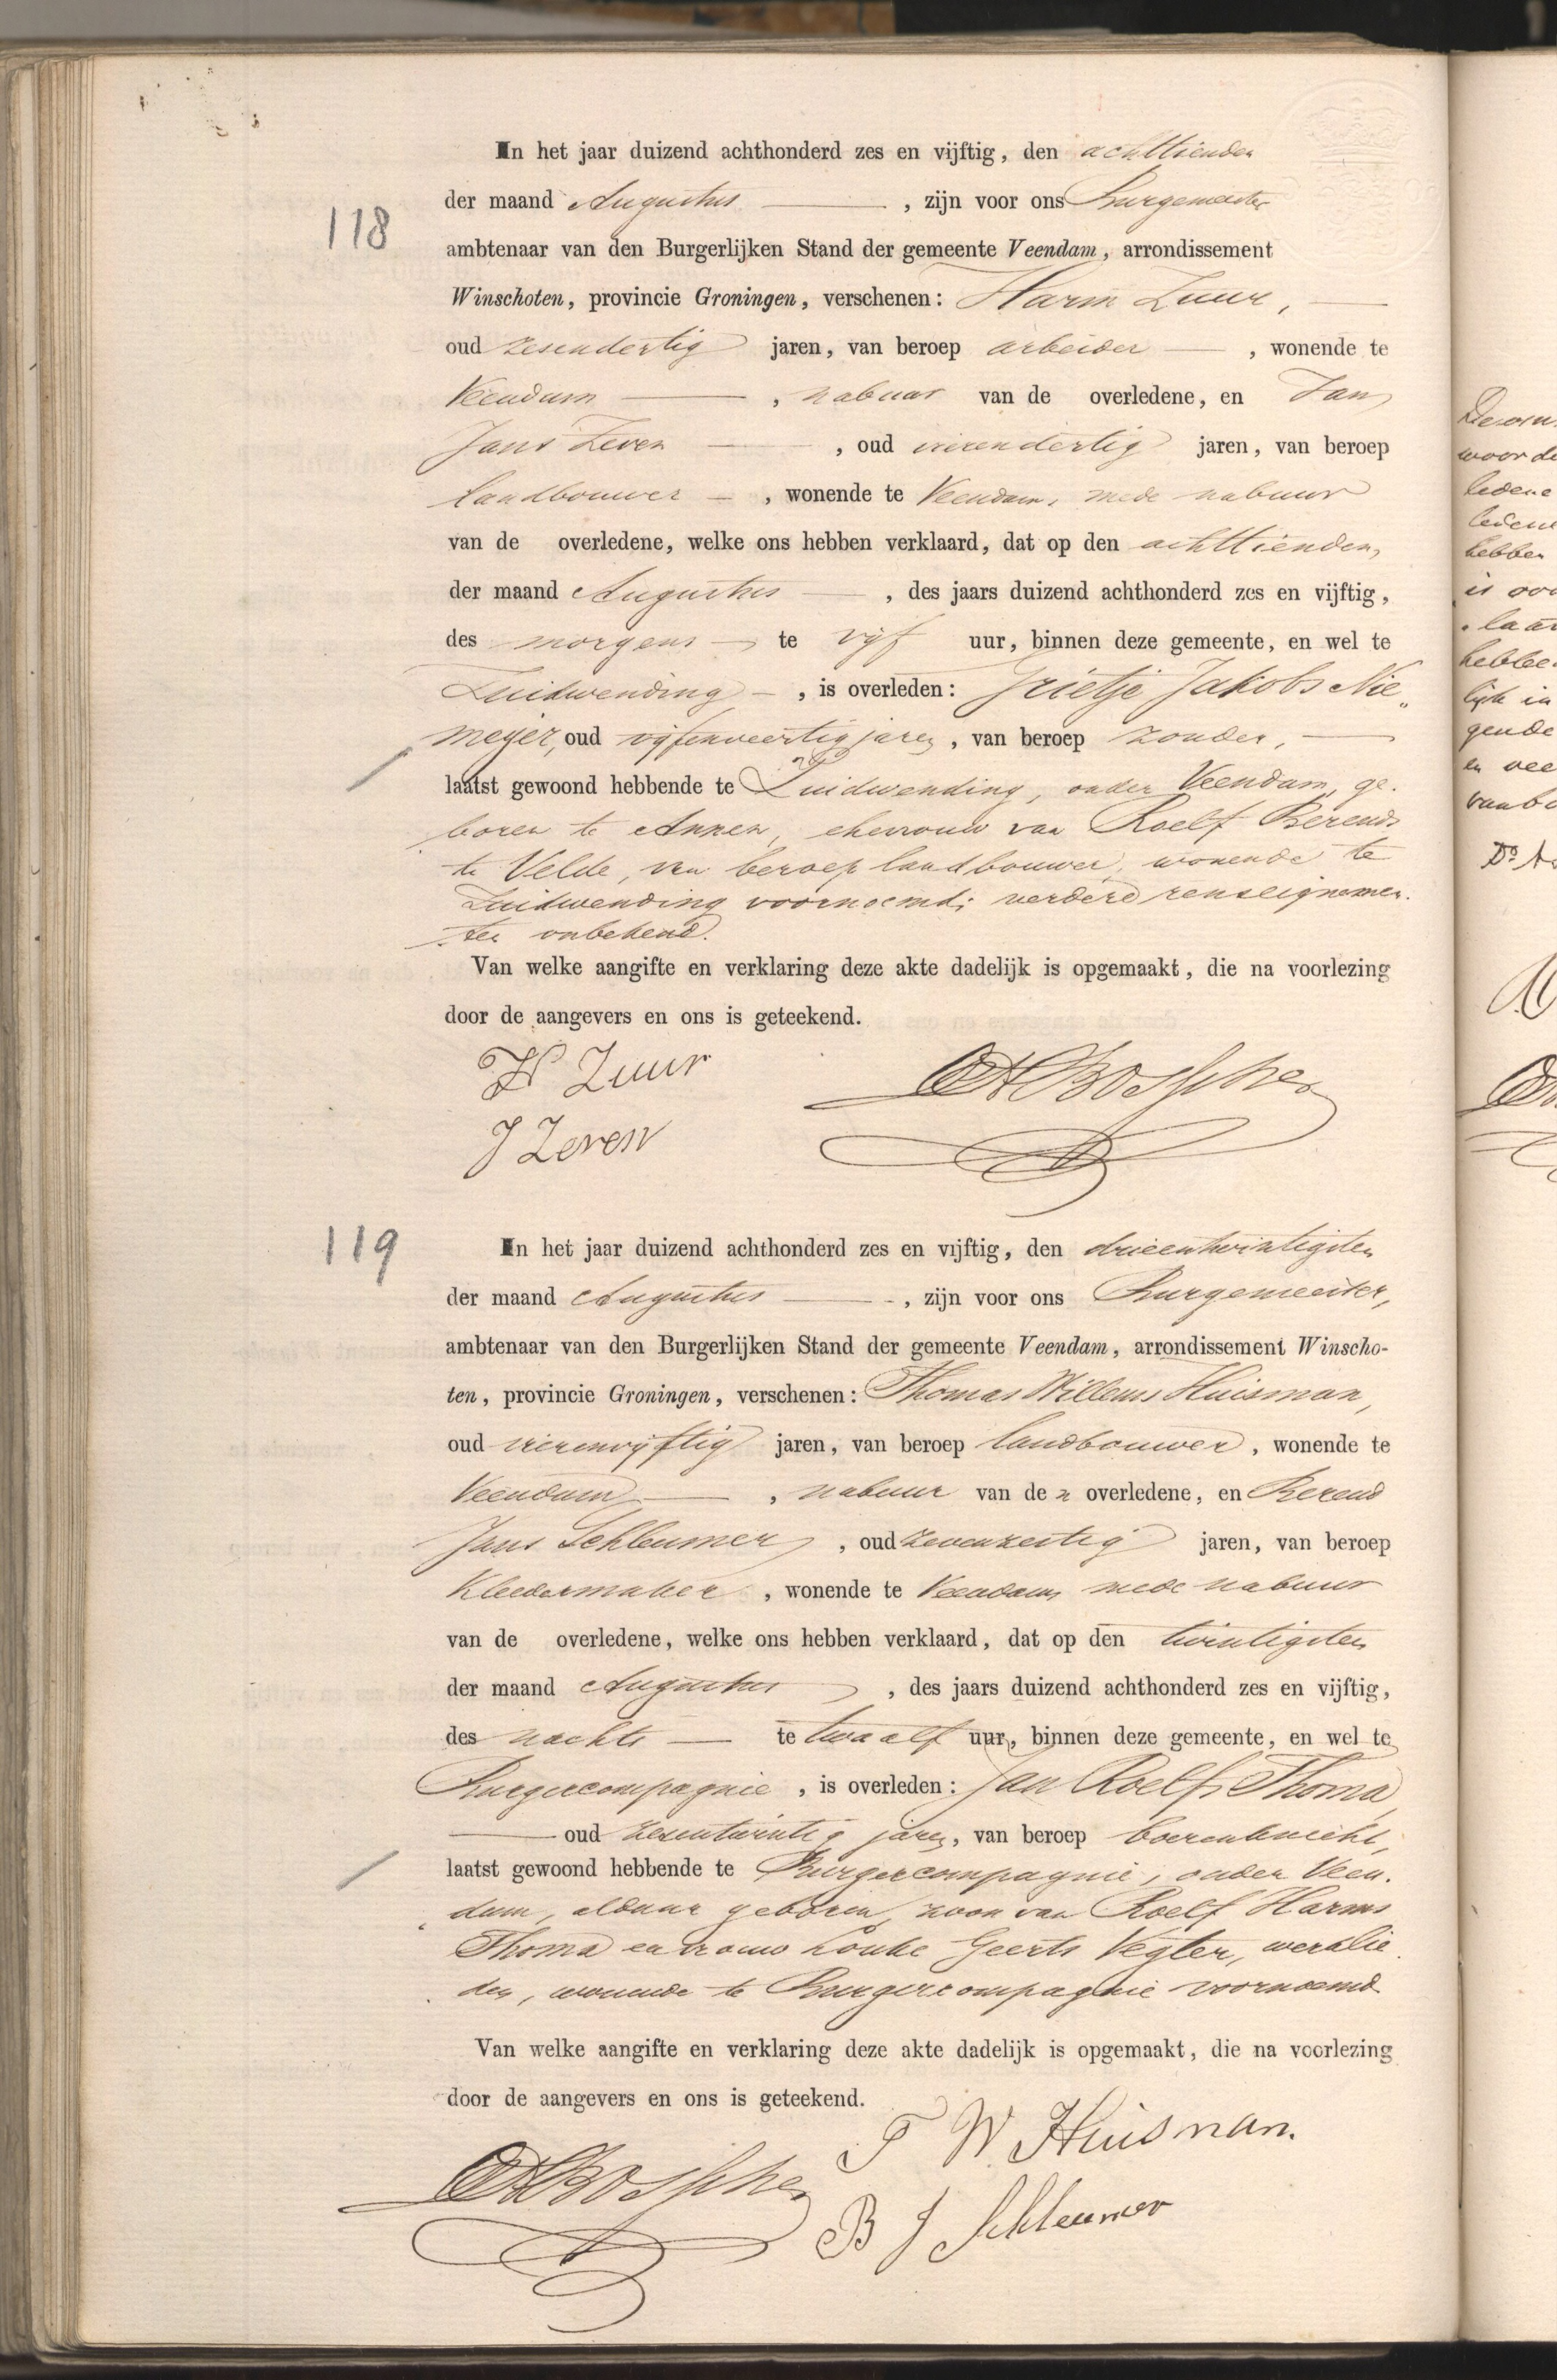 118
In het jaar duizend achthonderd zes en vijftig, den achttienden
der maand Augustus, zijn voor ons Burgemeester
ambtenaar van den Burgerlijken Stand der gemeente Veendam, arrondissement
Winschoten, provincie Groningen, verschenen: Harm Zuur,
oud zesendertig jaren, van beroep arbeider, wonende te
Veendam, nabuur van de overledene, en Jan
Jans Zeven, oud vierendertig jaren, van beroep
landbouwer, wonende te Veendam, mede nabuur
van de overledene, welke ons hebben verklaard, dat op den achttienden
der maand Augustus, des jaars duizend achthonderd zes en vijftig,
des morgens te vijf uur, binnen deze gemeente, en wel te
Zuidwending, is overleden: Grietje Jakobs Nie„
meyer, oud vijfenveertig jaren, van beroep zonder,
laatst gewoond hebbende te Zuidwending, onder Veendam, ge-
boren te Annen, ehevrouw van Roelf Berends
te Velde, van beroep landbouwer, wonende te
Zuidwending voornoemd; verdere renseignemen-
ten onbekend.
Van welke aangifte en verklaring deze akte dadelijk is opgemaakt, die na voorlezing
door de aangevers en ons is geteekend.
H Zuur
J Zeven
119
In het jaar duizend achthonderd zes en vijftig, den drieentwintigsten
der maand Augustus, zijn voor ons Burgemeester,
ambtenaar van den Burgerlijken Stand der gemeente Veendam, arrondissement Winscho-
ten, provincie Groningen, verschenen: Thomas Willems Huisman,
oud vierenvijftig jaren, van beroep landbouwer, wonende te
Veendam, nabuur van den overledene, en Berend
Jans Schleumer, oud zevenzestig jaren, van beroep
Kleedermaker, wonende te Veendam, mede nabuur
van de overledene, welke ons hebben verklaard, dat op den twintigsten
der maand Augustus, des jaars duizend achthonderd zes en vijftig,
des nachts te twaalf uur, binnen deze gemeente, en wel te
Burgercompagnie, is overleden: Jan Roelfs Thoma,
oud zesentwintig jaren, van beroep boerenknecht,
laatst gewoond hebbende te Burgercompagnie, onder Veen-
dam, aldaar geboren, zoon van Roelf Harms
Thoma en vrouw Geerts Vegter, werklie-
den, wonende te Burgercompagnie voornoemd
Van welke aangifte en verklaring deze akte dadelijk is opgemaakt, die na voorlezing
door de aangevers en ons is geteekend.
T W. Huisman.
B J Schleumer